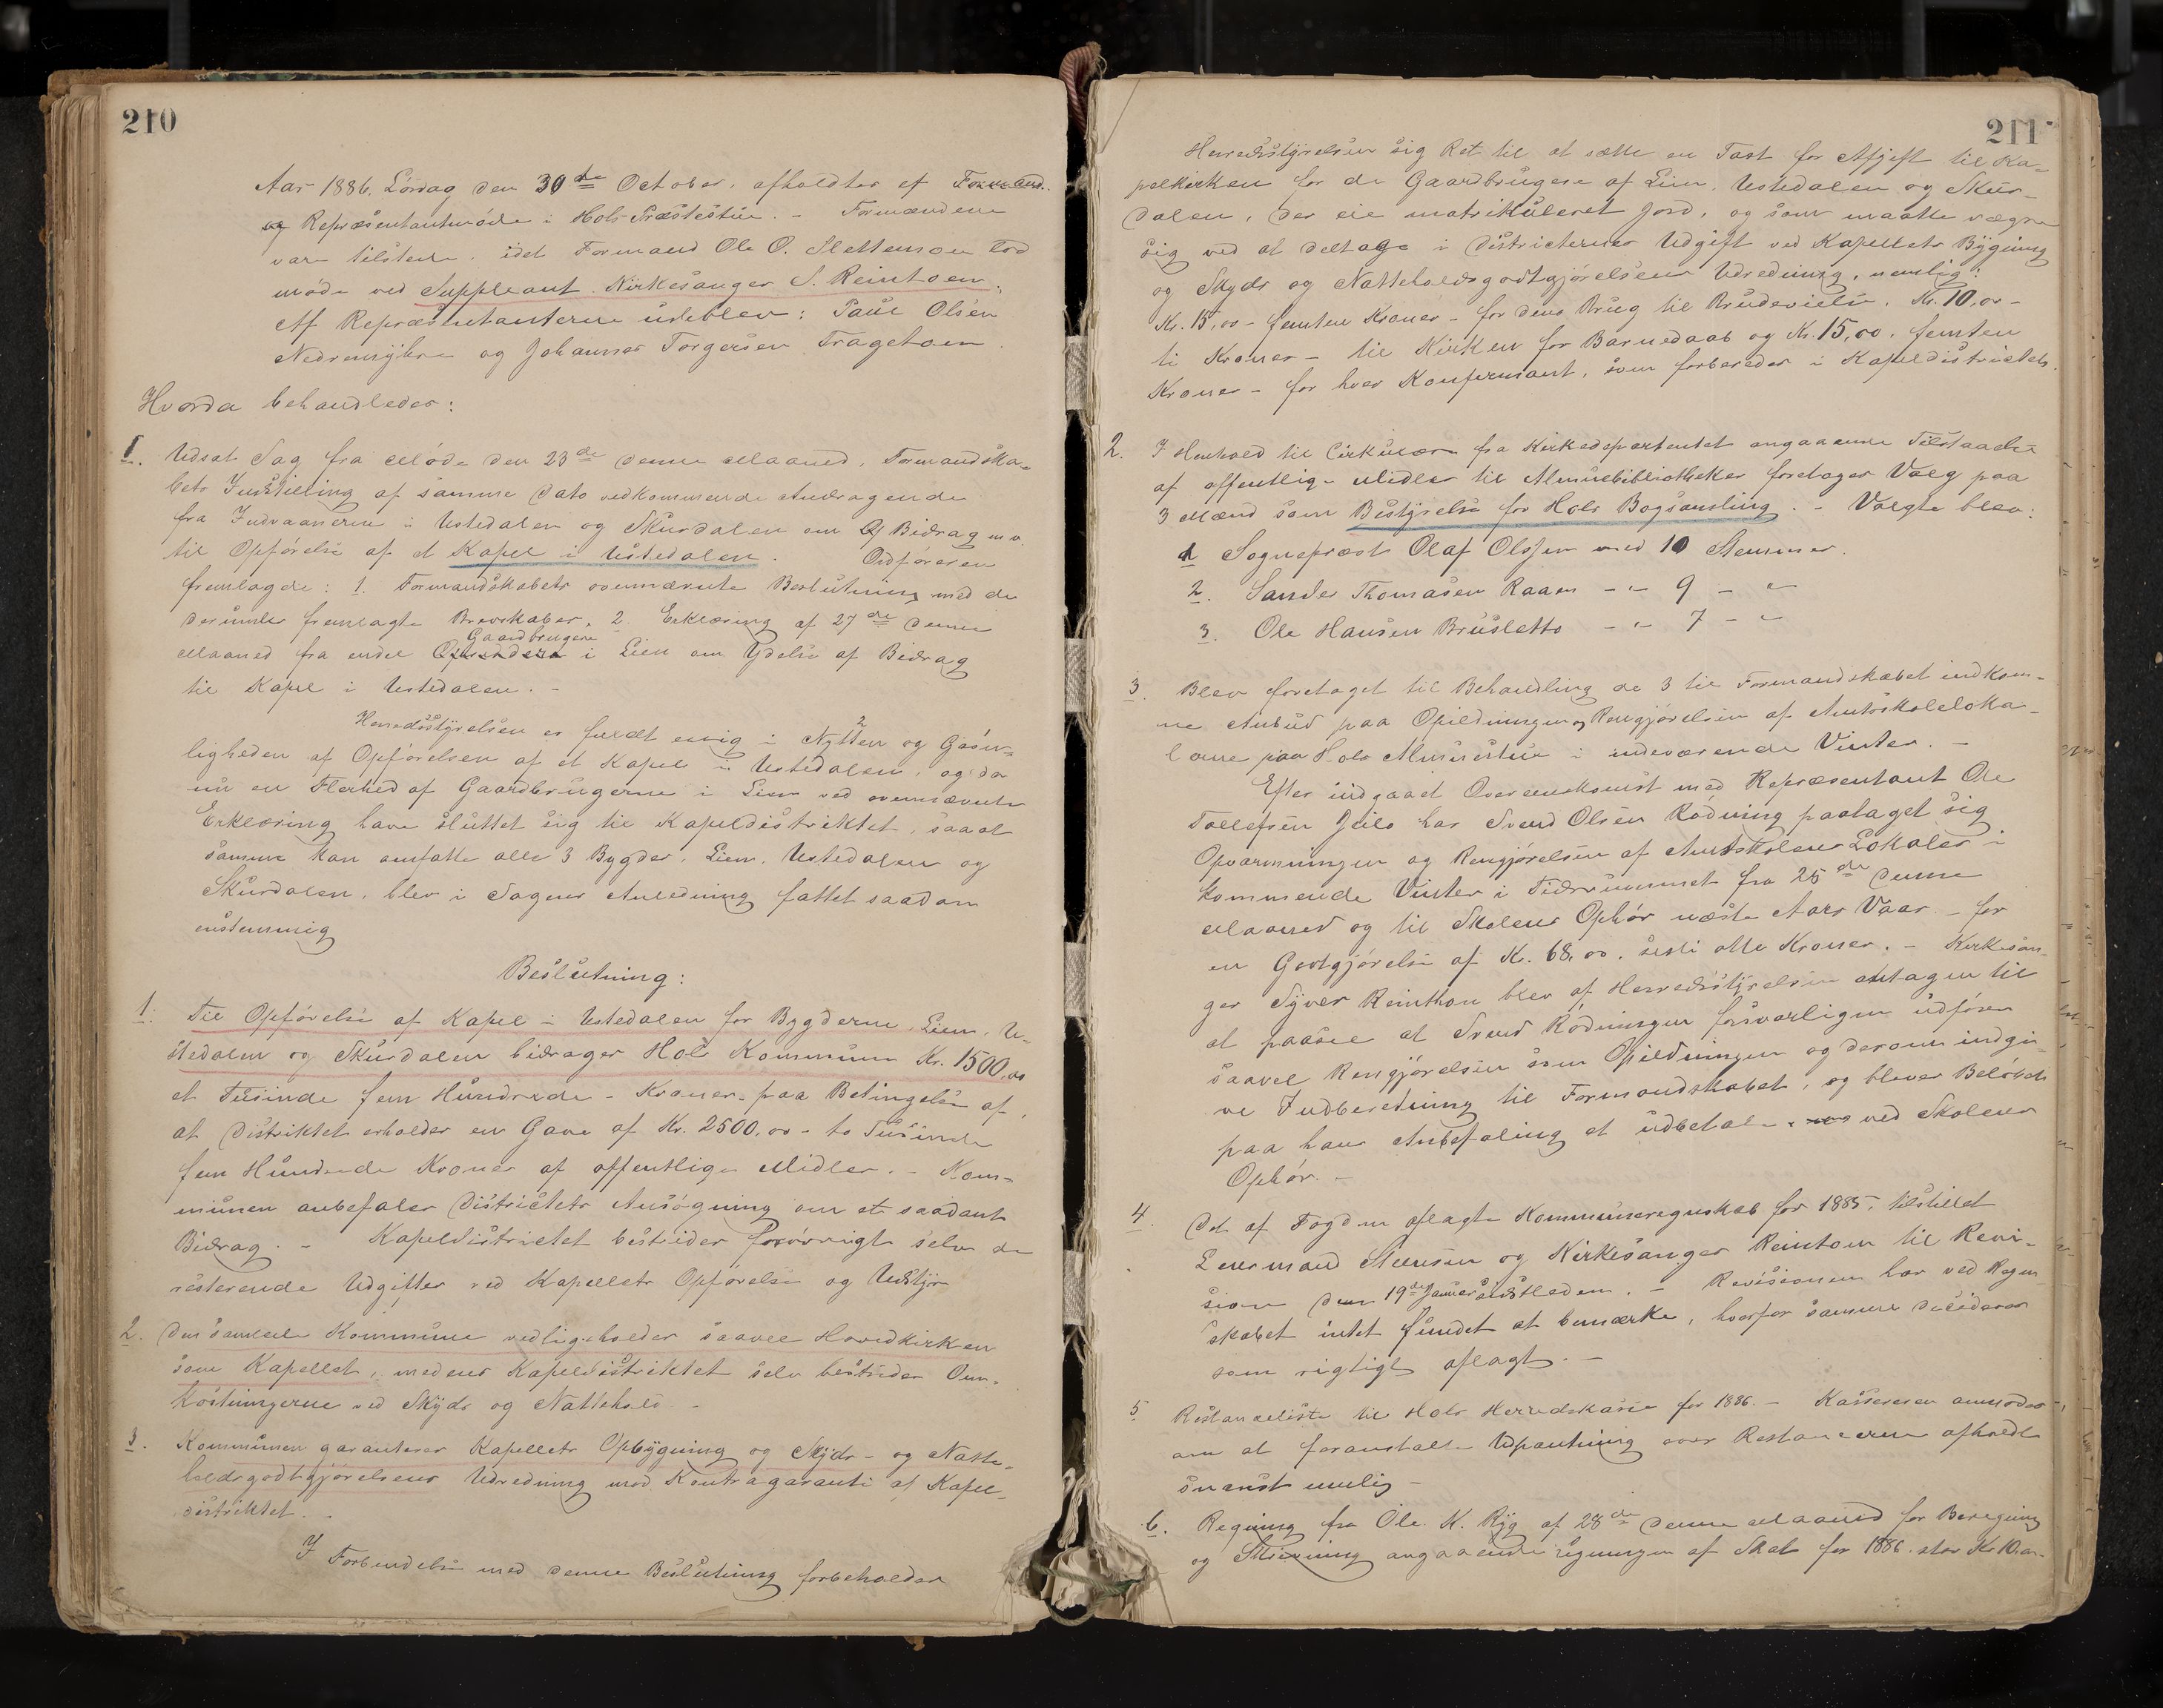 210
Aar 1886. Lørdag den 30de October, afholdtes et
og Repræsentantmøde i Hols Præstestue. - Formændene
vare tilstede, idet Formand Ole O. Slettemoen lod
møde ved Suppleant Kirkesanger S. Reintoen.
Af Repræsentanterne udeblev: Paul Olsen
Nedremyhre og Johannes Torgersen Tragetoen.
Hvorda behandledes:
1. Udsat Sag fra Møde den 23de denne Maaned, Formandska-
bets Indstilling af samme Dato vedkommende Andragende
fra Indvaanerne i Ustedalen og Skurdalen om Bidrag m.v.
til Opførelse af et Kapel i Ustedalen. Ordføreren
fremlagde: 1. Formandskabets ovennævnte Beslutning med de
derunder fremlagte Brevskaber, 2. Erklæring af 27de denne
Gaardbrugere
Maaned fra endel i Lien om Ydelse af Bidrag
til Kapel i Ustedalen. -
Herredsstyrelsen er fuldt enig i Nytten og Gavn-
ligheden af Opførelsen af et Kapel i Ustedalen, og da
nu en Flerhed af Gaardbrugerne i Lien ved ovennævnte
Erklæring have sluttet sig til Kapeldistriktet, saaat
samme kan omfatte alle 3 Bygder, Lien, Ustedalen og
Skurdalen, blev i Sagens Anledning fattet saadan
enstemmig
Beslutning:
1. Til Opførelse af Kapel i Ustedalen for Bygderne, Lien, U-
stedalen og Skurdalen bidrager Hols Kommune Kr. 1500,00
et Tusinde fem Hundrede - Kroner - paa Betingelse af,
at Distriktet erholder en Gave af Kr. 2500,00 - to Tusinde
fem Hundrede Kroner af offentlige Midler. - Kom-
munen anbefaler Districtets Ansøgning om et saadant
Bidrag. - Kapeldistrictet bestrider forøvrigt selv de
resterende Udgifter ved Kapellets Opførelse og Udstyr
2. Den samlede Kommune vedligeholder saavel Hovedkirken
som Kapellet, medens Kapeldistriktet selv bestrider Om-
kostningerne ved Skyds og Nattehold. -
3. Kommunen garanterer Kapellets Opbygning og Skyds- og Natte-
holdsgodtgjørelsens Udredning mod Kontragaranti af Kapel-
distriktet. -
I Forbindelse med denne Beslutning forbeholder
211
Herredsstyrelsen sig Ret til at sætte en Taxt for Afgift til Ka-
pelkirken for de Gaardbrugere af Lien, Ustedalen og Skur-
dalen, der eie matrikuleret Jord, og som maatte vægre
sig ved at deltage i Districternes Udgift ved Kapellets Bygning
og Skyds og Natteholdsgodtgjørelsens Udredning, nemlig:
Kr. 15,00 - femten Kroner - for dens Brug til Brudevielse, Kr. 10,00 -
ti Kroner - til Kirken for Barnedaab og Kr. 15,00, femten
Kroner - for hver Konfirmant, som forbereder i Kapeldistrictet.
2. I Henhold til Cirkulære fra Kirkedepartentet angaaende Tilstaaelse
af offentlige Midler til Almuebibliotheker foretages Valg paa
3 Mænd som Bestyrelse for Hols Bogsamling. - Valgte blev:
1 Sognepræst Olaf Olssen med 10 Stemmer.
2. Sander Thomasen Raaen - " - 9 - "
3. Ole Hansen Brusletto - " - 7 - "
3. Blev foretaget til Behandling de 3 til Formandskabet indkom-
ne Anbud paa Opildningen og Rengjørelsen af Amtsskolelokа-
lerne paa Hols Almuestue i indeværende Vinter. -
Efter indgaaet Overenskomst med Repræsentant Ole
Tollefsen Jeilo har Svend Olsen Rødning paataget sig
Opvarmningen og Rengjørelsen af Amtskolens Lokaler i
kommende Vinter i Tidsrummet fra 25de denne
Maaned og til Skolens Ophør næste Aars Vaar - for
en Godtgjørelse af Kr. 68,00, sexti otte Kroner. - Kirkesan-
ger Syver Reinthon blev af Herredsstyrelsen antagen til
at paasee at Svend Rødningen forsvarligen udfører
saavel Rengjørelsen som Opildningen og derom indgi-
ve Indberetning til Formandskabet, og bliver Beløbet
paa hans Anbefaling at udbetale ved Skolens
Ophør. -
4. Det af Fogden aflagte Kommuneregnskab for 1885, tilstillet
Lensmand Steensen og Kirkesanger Reintoen til Revi-
sion den 19de Januar sidstleden. - Revisionen har ved Regn-
skabet intet fundet at bemærke, hvorfor samme decideres
som rigtigt aflagt. -
5. Restanceliste til Hols Herredskasse for 1886. - Kassereren anmodes
om at foranstalte Udpantning over Restancerne afholdt
snarest mulig -
6. Regning fra Ole K. Ryg af 28de denne Maaned for Beregning
og Skrivning angaaende ligningen af Skat for 1886, stor Kr 10.00.